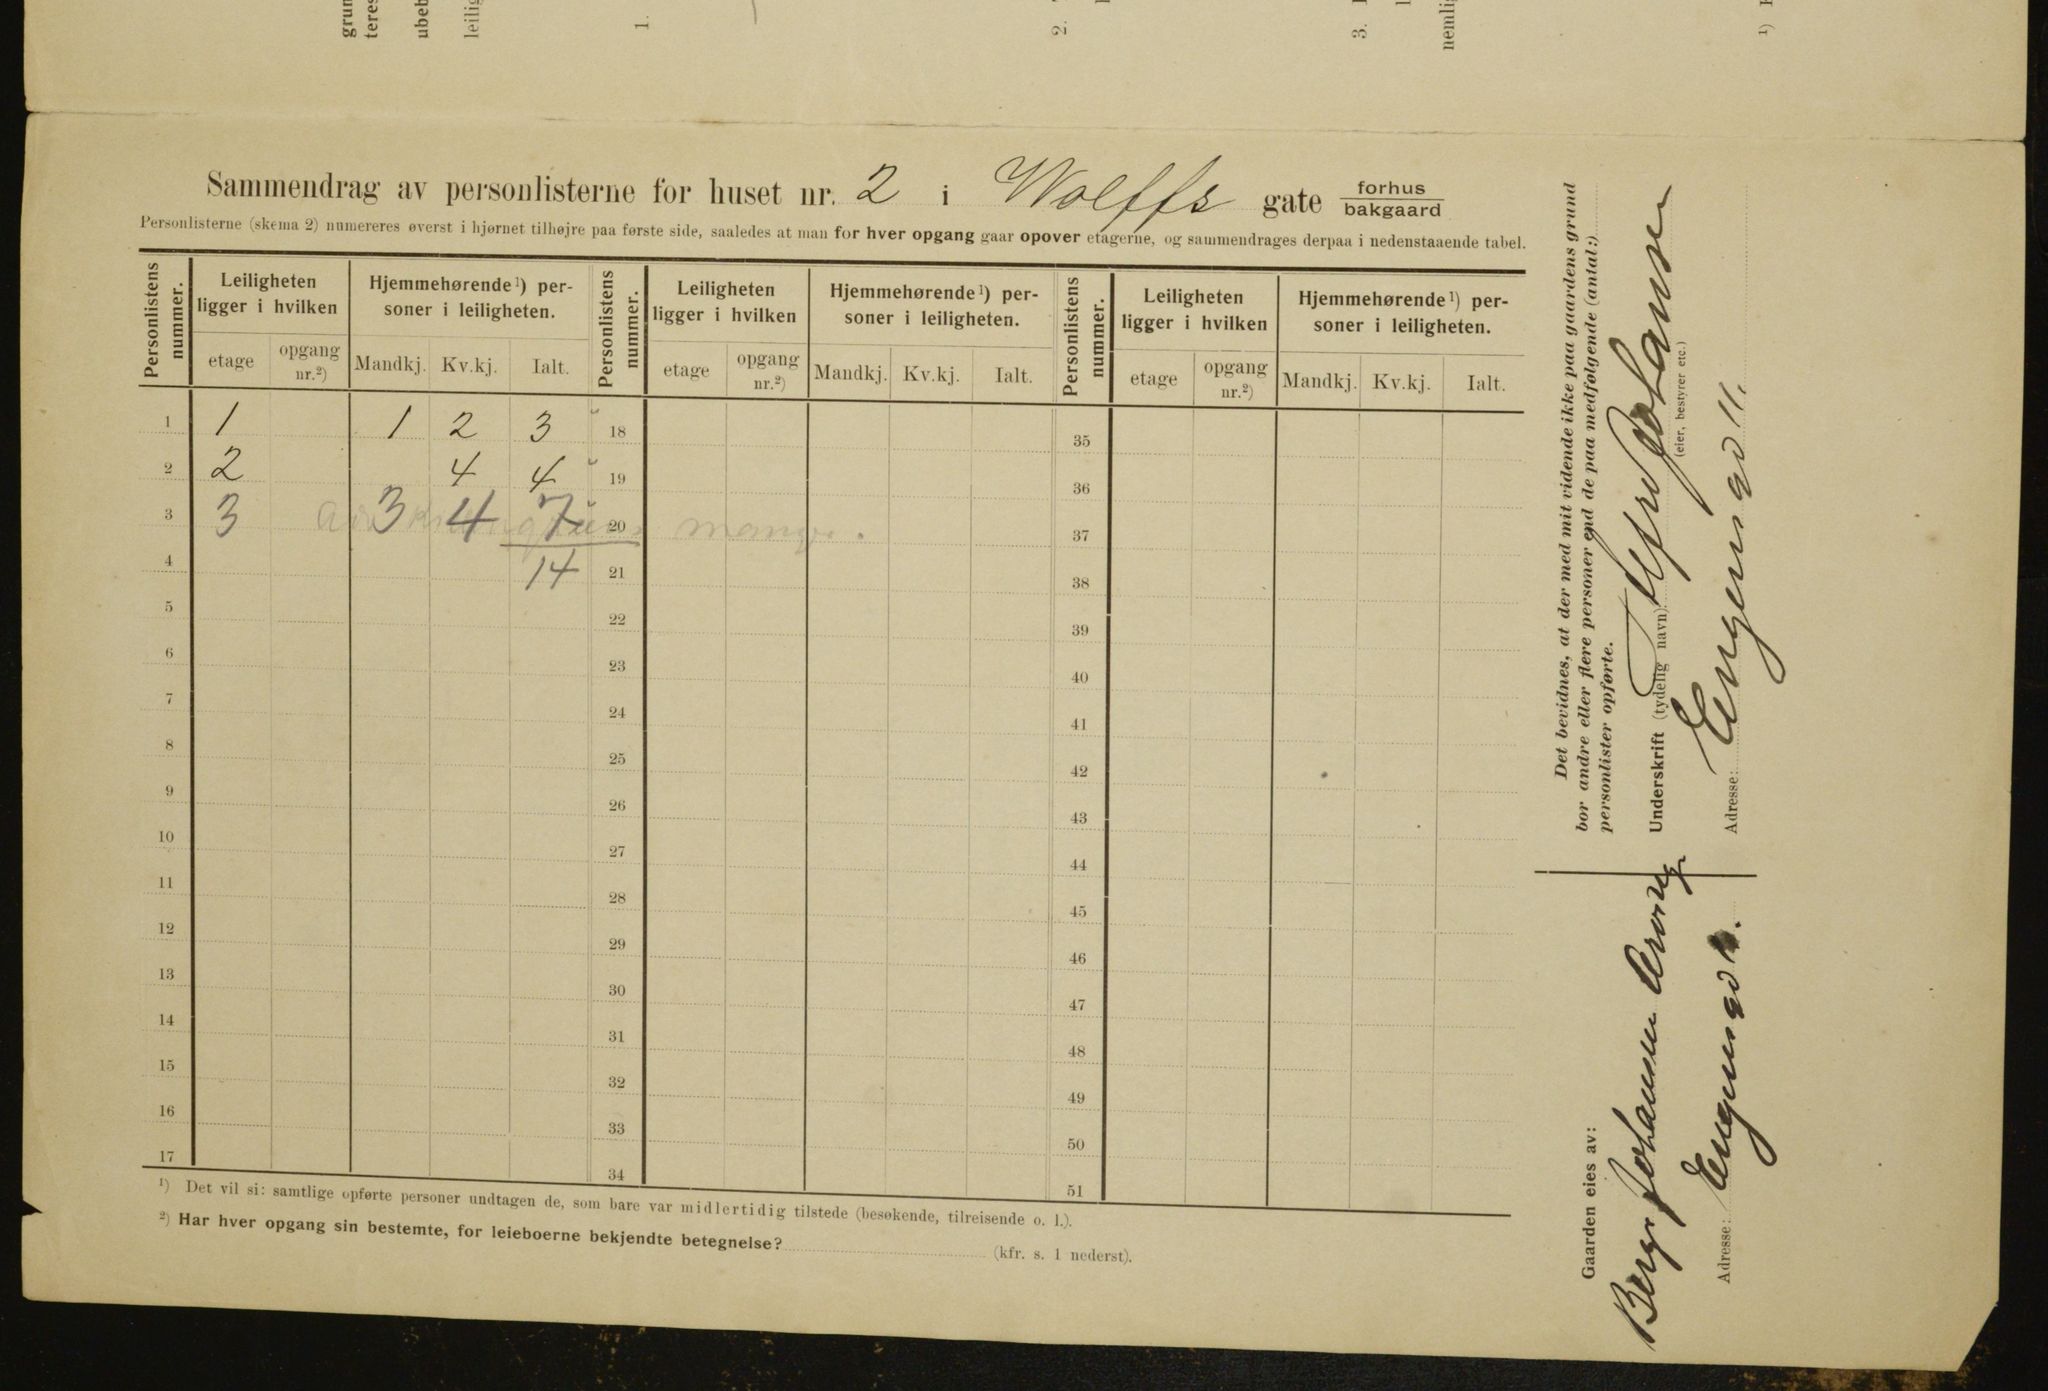 grun
teres
ubeb
leilig
1.
2.
3.
nemlig
1)
Sammendrag av personlisterne for huset nr. 2 i Wolffs gate forhus
bakgaard
Personlisterne (skema 2) numereres øverst i hjørnet tilhøjre paa første side, saaledes at man for hver opgang gaar opover etagerne, og sammendrages derpaa i nedenstaaende tabel.
Personlistens nummer. Leiligheten ligger i hvilken Hjemmehørende¹) personer i leiligheten. Personlistens nummer. Leiligheten ligger i hvilken Hjemmehørende¹) personer i leiligheten. Personlistens nummer. Leiligheten ligger i hvilken Hjemmehørende¹) personer i leiligheten.
etage opgang nr.²) Mandkj. Kv.kj. Ialt. etage opgang nr.²) Mandkj. Kv.kj. Ialt. etage opgang nr.²) Mandkj. Kv.kj. Ialt.
1 1 1 2 3 18 35
2 2 4 4 19 36
3 3 3 4 7 20 mangl. 37
4 14 21 38
5 22 39
6 23 40
7 24 41
8 25 42
9 26 43
10 27 44
11 28 45
12 29 46
13 30 47
14 31 48
15 32 49
16 33 50
17 34 51
¹) Det vil si: samtlige opførte personer undtagen de, som bare var midlertidig tilstede (besøkende, tilreisende o. l.).
²) Har hver opgang sin bestemte, for leieboerne bekjendte betegnelse? (kfr. s. 1 nederst).
Det bevidnes, at der med mit vidende ikke paa gaardens grund
bor andre eller flere personer end de paa medfølgende (antal:)
personlister opførte.
Underskrift (tydelig navn): Alfred Johansen
(eier, bestyrer etc.)
Adresse: Engensgd 11.
Gaarden eies av:
Berg Johansen
Adresse: Engensgd